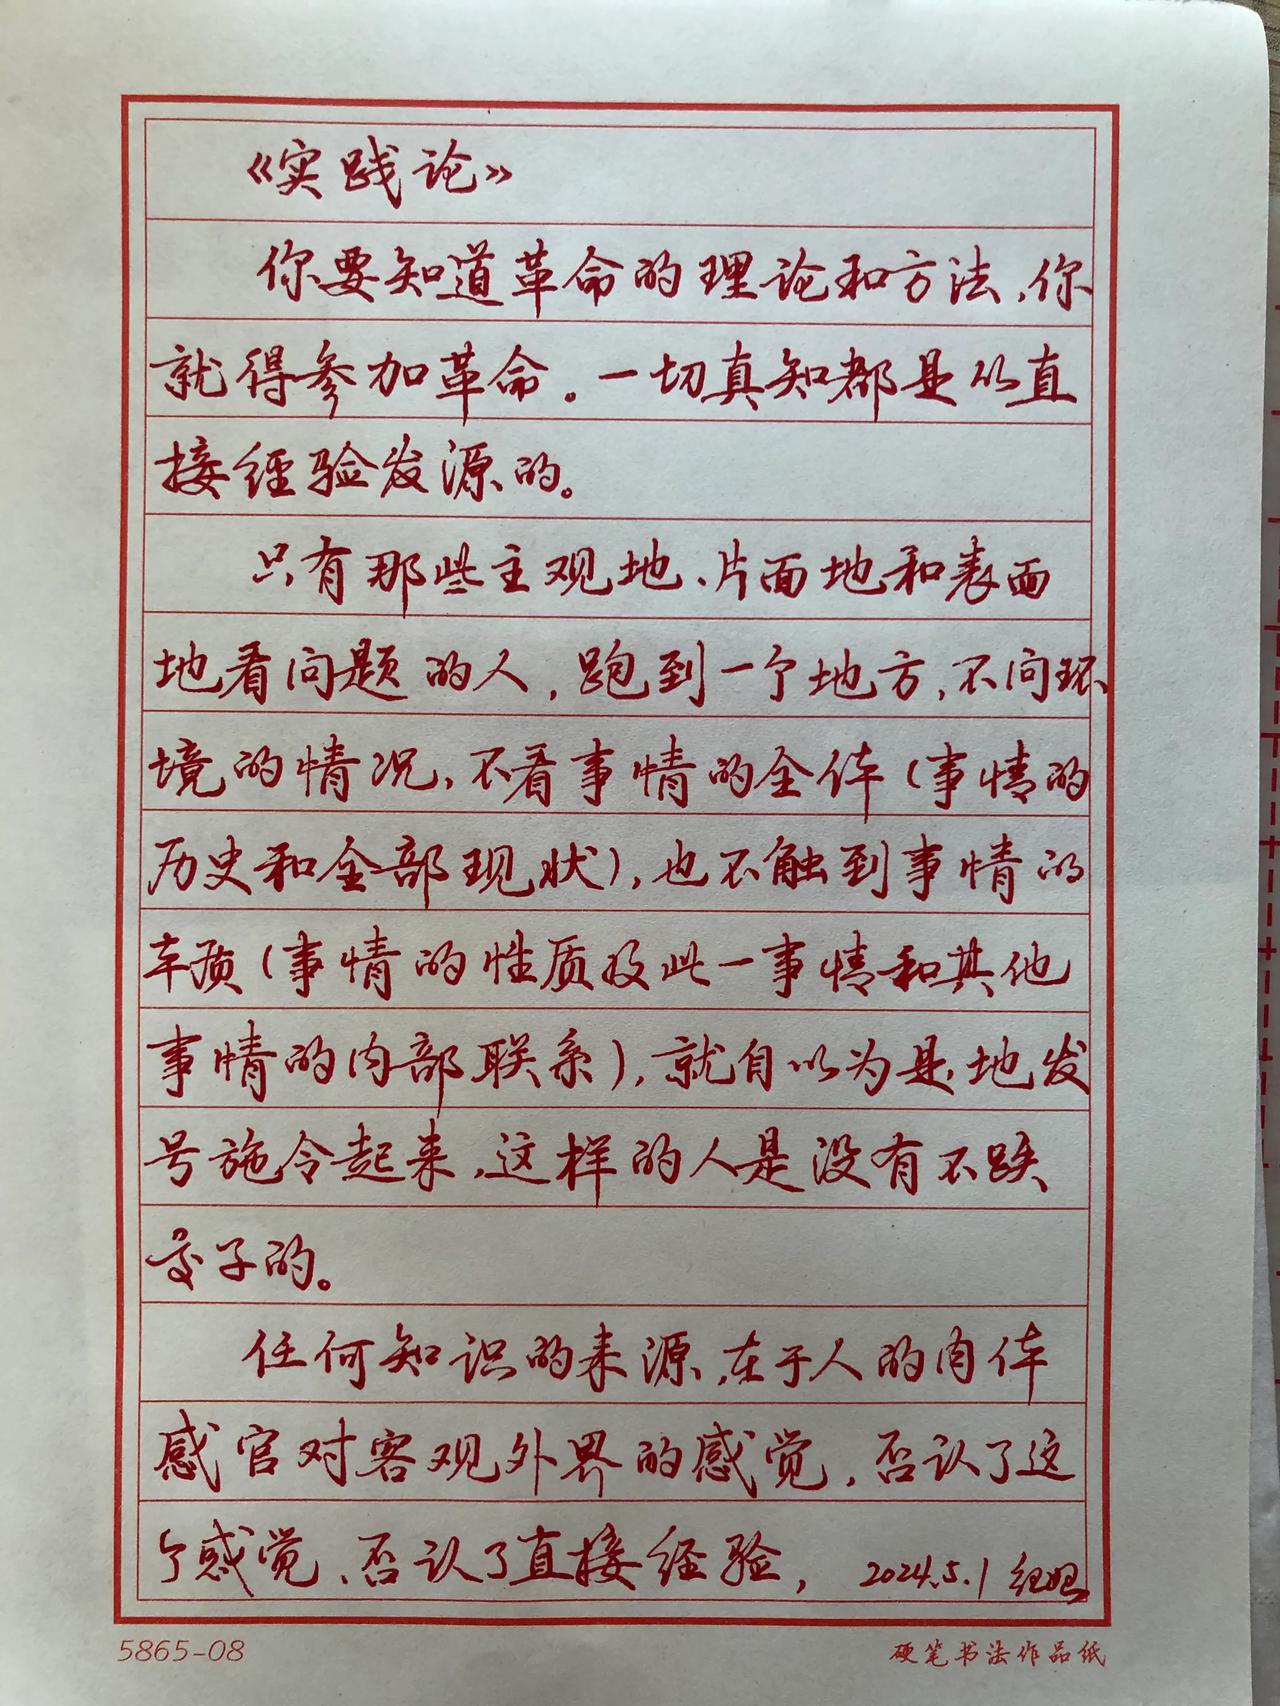 《实践论》
你要知道革命的理论和方法,你
就得参加革命。一切真知都是从直
接经验发源的。
只有那些主观地、片面地和表面
地看问题的人,跑到一个地方,不问环
境的情况,不看事情的全体(事情的
历史和全部现状),也不触到事情的
本质(事情的性质及此一事情和其他
事情的内部联系),就自以为是地发
号施令起来,这样的人是没有不跌
交子的。
任何知识的来源,在于人的肉体
感官对客观外界的感觉,否认了这
个感觉、否认了直接经验, 2024.5.1
5865-08
硬笔书法作品纸